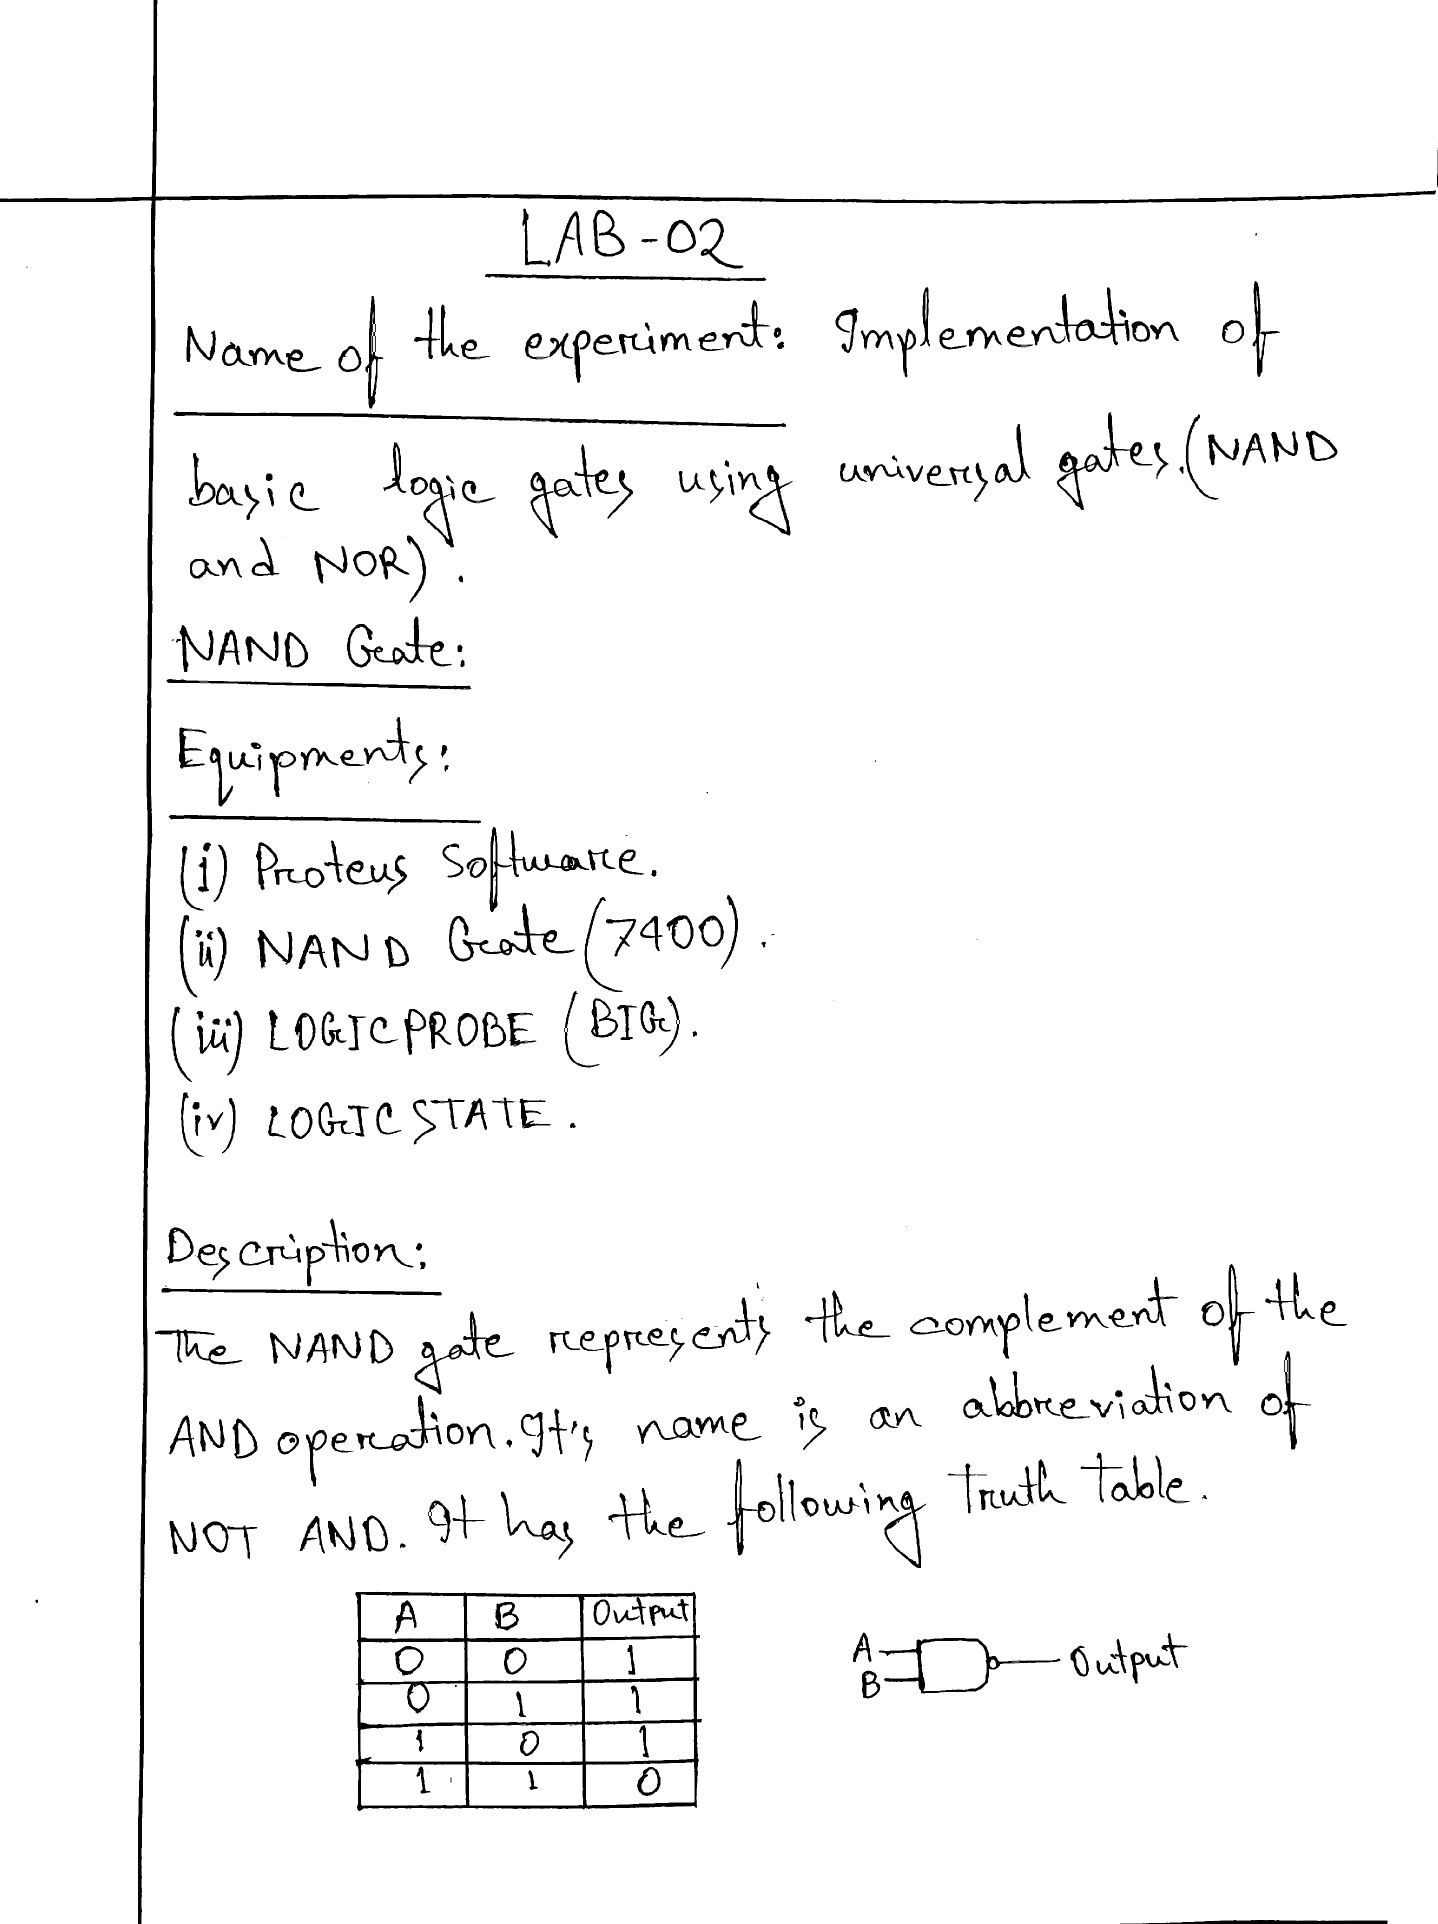 LAB-02
Name of the experiment: Implementation of
basic logic gates using universal gates.(NAND
and NOR).
NAND Gate:
Equipments:
(i) Proteus Software.
(ii) NAND Gate (7400).
(iii) LOGICPROBE (BIG).
(iv) LOGICSTATE.
Description:
The NAND gate represents the complement of the
AND operation. It's name is an abbreviation of
NOT AND. It has the following truth table.
A B Output
0 0 1
0 1 1
1 0 1
1 1 0
A
B
Output